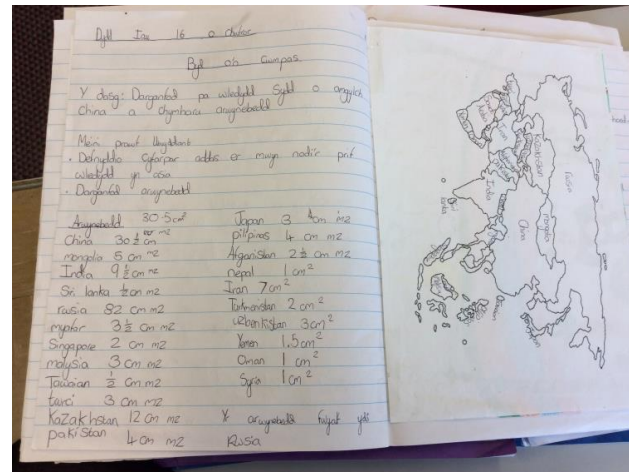 Dydd Iau 16 o
Byd o'b Cwmpas
Y dasg: Darganfod pa wledydd Sydd o amgylch
China a chymharu arwynebedd
Meini prawf llwyddiant
• Defnyddio Cyfarpar addas er mwyn nodi'r prif
wledydd yn asia
• Darganfod arwynebedd
Arwynebedd 30.5cm²
China 30 ½ cm m2
mongolia 5 cm m2
India 9 ½ cm m2
Sri lanka ½ cm m2
rusia 82 cm m2
3 ½ cm m2
Singapore 2 cm m2
malysia 3 cm m2
Tawaian ½ cm m2
turci 3 cm m2
KaZakhstan 12 cm m2
pakistan 4 cm m2
Japan 3 cm m2
pilipines 4 cm m2
Afganistan 2 ½ cm m2
nepal 1 cm²
Iran 7 cm²
2 cm²
uzbenkistan 3 cm²
Yemen 1.5 cm²
Oman 1 cm²
Syria 1 cm²
Yr arwynebedd ydi
Rusia
Rusia
Kazakhstan
mongolia
China
India
Sri
lanka